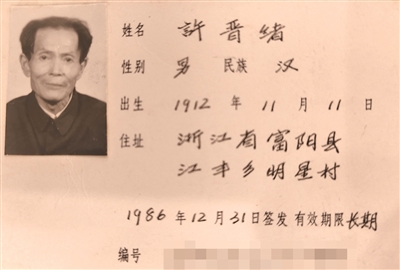 姓名 許晋緒
性别 男 民族 汉
出生 1912 年 11 月 11 日
住址 浙江省富阳县
江丰乡明星村
1986 年 12 月 31 日签发 有效期限 长期
编号